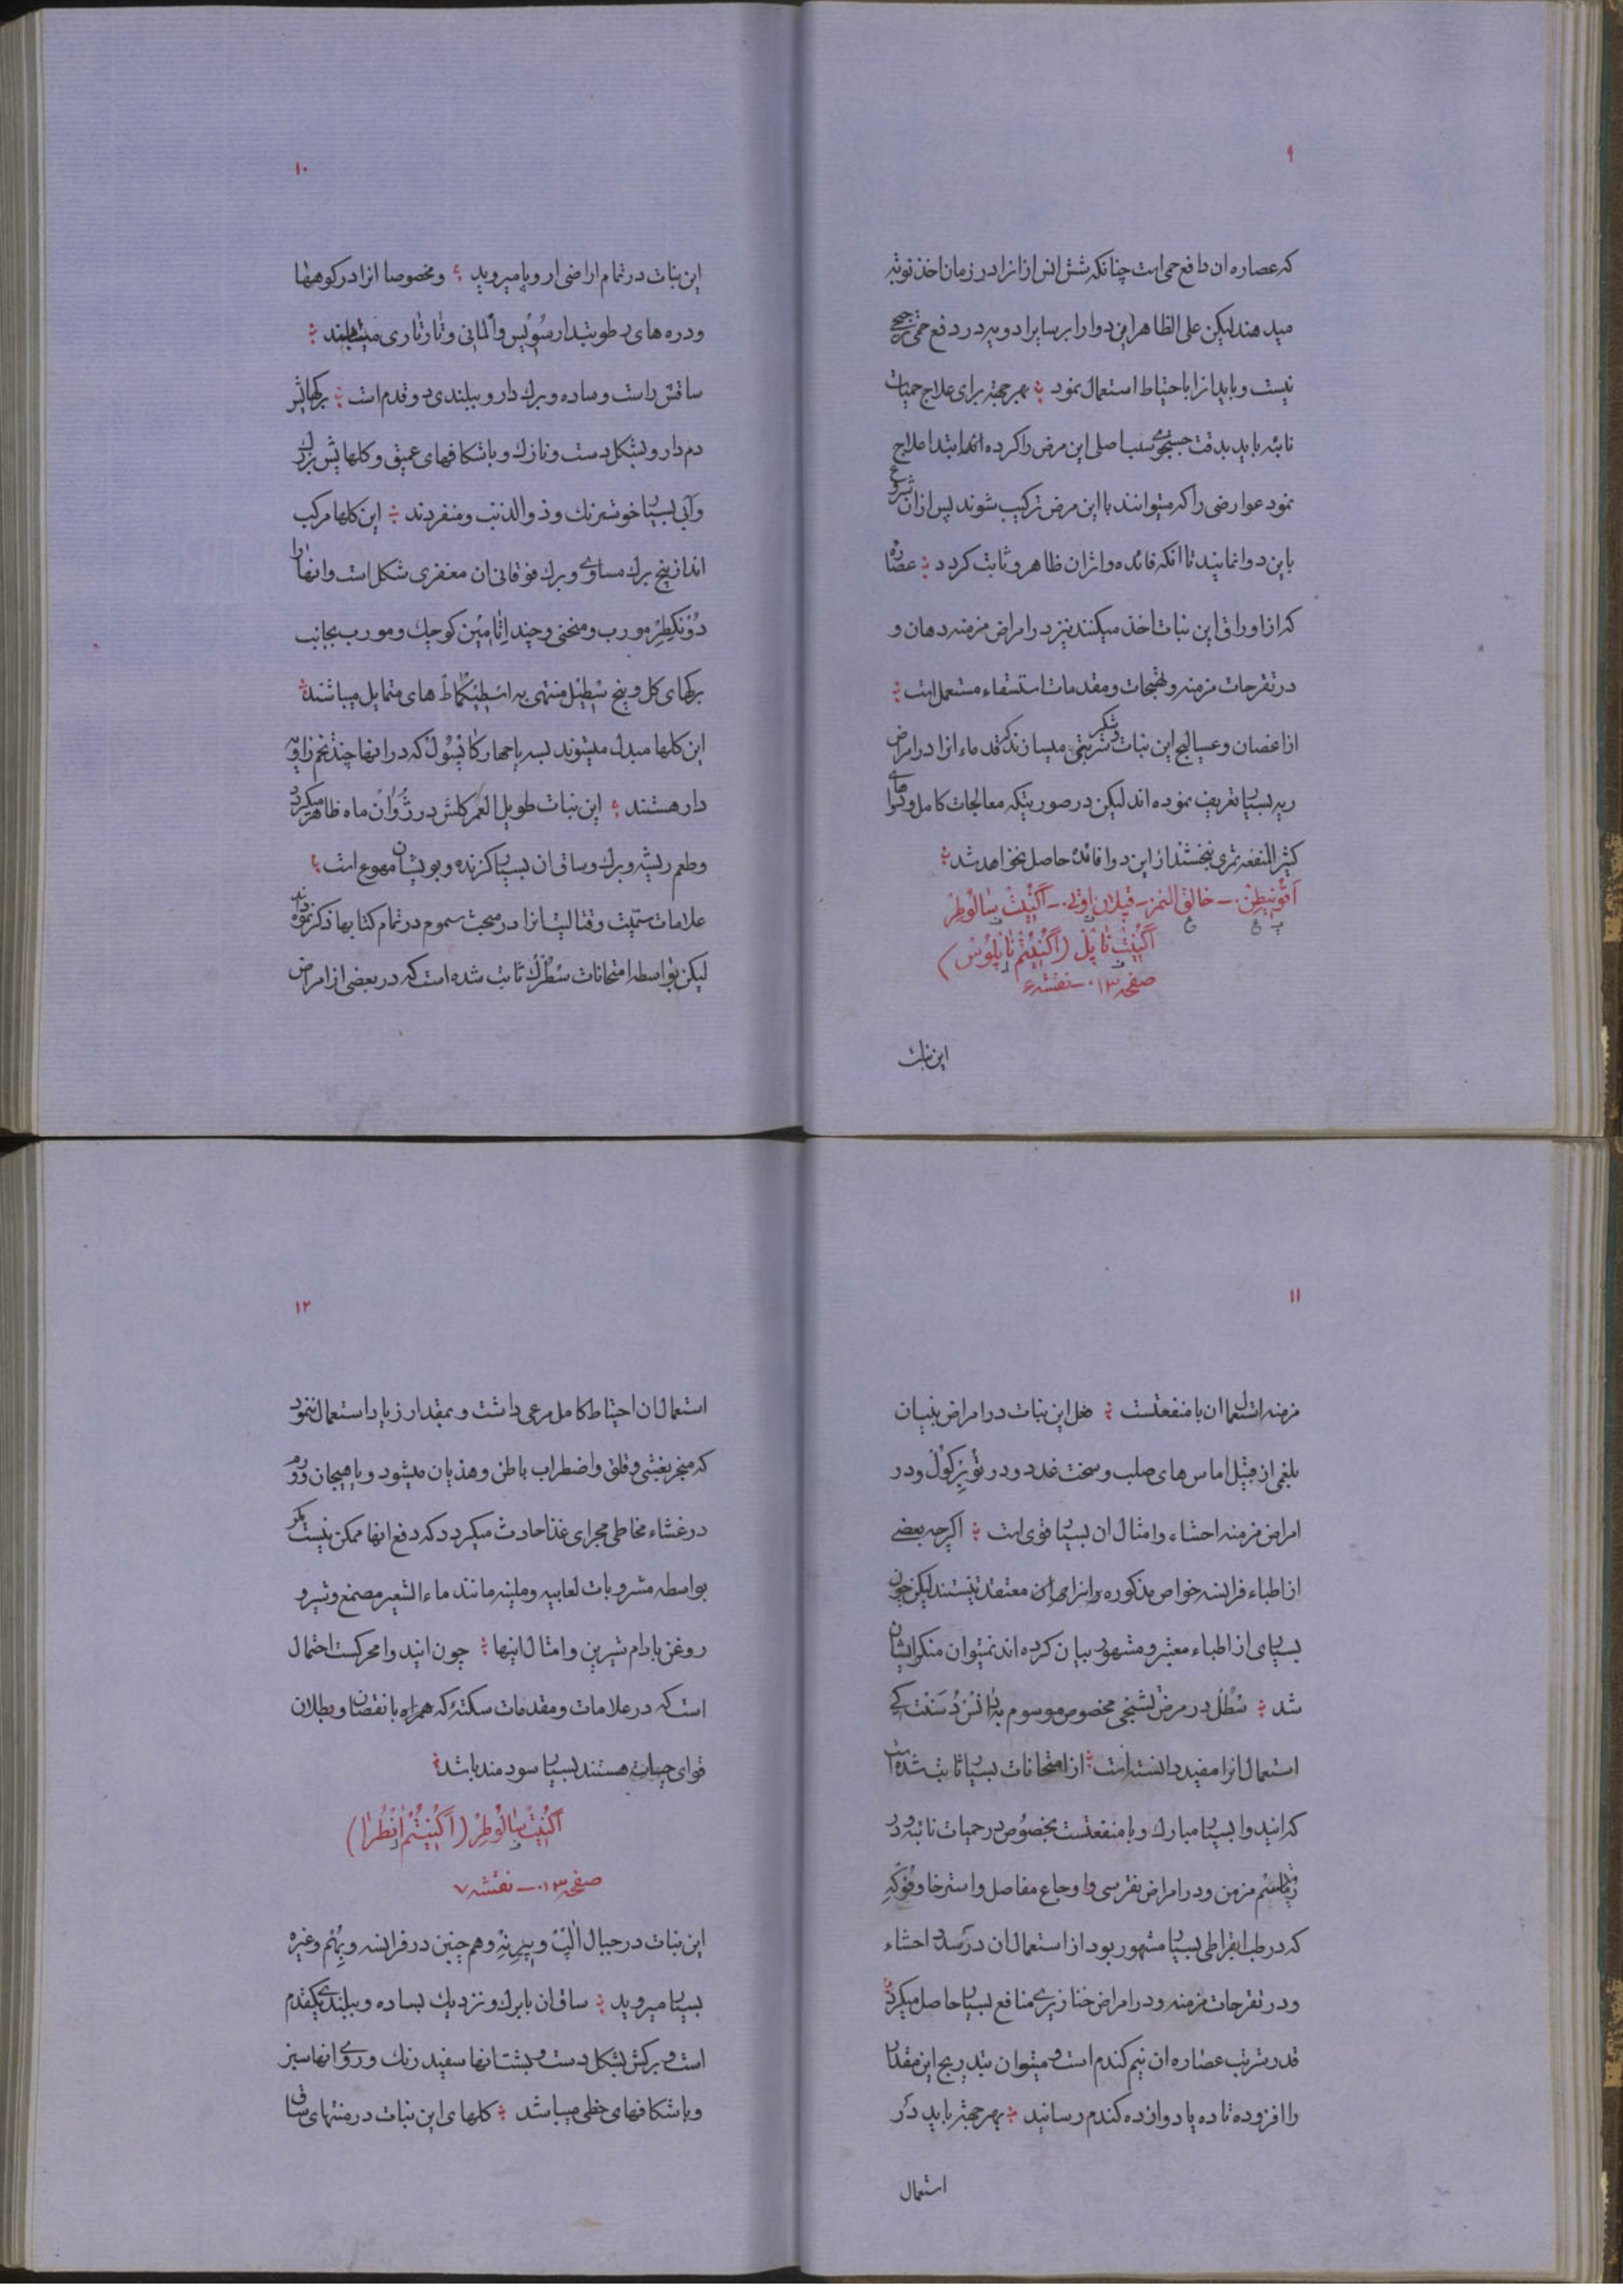 ۹
که عصاره ان دافع حمی است چنانکه شش انس از انرا در زمان اخذ نوبه
میدهند لیکن علی الظاهر این دوا را بر سایر ادویه در دفع حمی ترجیحی
نیست و باید انرا با احتیاط استعمال نمود بهرجهة برای علاج حمیات
نائبه باید بدقت جستجوی سبب اصلی این مرض را کرده ابتدا علاج
نمود عوارضی را که میتوانند با این مرض ترکیب شوند پس از ان شروع
باین دوا نمایند تا انکه فائده و اثر ان ظاهر و ثابت کردد عصاره
که از اوراق این نبات اخذ میکنند نیز در امراض مزمنه دهان و
در تقرحات مزمنه و تهیجات و مقدمات استسقاء مستعمل است
از اغصان و عسالیج این نبات شربتی میسازند که قدماء انرا در امراض
ریه بسیار تعریف نموده اند لیکن در صورتیکه معالجات کامل و دواهای
کثیر المنفعه ثمری نبخشند از این دوا فائده حاصل نخواهد شد
اَقُونیطُن - خانق النمر - اَکُنیْتْ سالُوطِرْ
اَکُنیْتْ ناپِلْ (اَکُنیتُمْ ناپِلُوسْ)
صفحه ۱۳۰ - نقشه ۶
این نبات
۱۰
این نبات در تمام اراضی اروپا میروید و مخصوصا انرا در کوهها
و دره های رطوبتدار سُوئیس و آلمانی و تارتاری میطلبند
ساقش راست و ساده و برك دار و ببلندی دو قدم است برکهایش
دم دار و بشکل دست و نازك و با شکافهای عمیق و کلهایش بزرك
و آبی بسیار خوشرنك و ذوالذنب و منفردند این کلها مرکب
اند از پنج برك مساوی و برك فوقانی ان مغفری شکل است و انها را
دُو نکطِرْ مورب و منحنی و چند اِتامین کوچك و مورب بجانب
برکهای کل و پنج سْطیل منتهی به اسْطیگماطْ های متمایل میباشند
این کلها مبدل میشوند بسه یا چهار کاپْسُول که در انها چند تخم زاویه
دار هستند این نبات طویل العمر کلش در ژُوان ماه ظاهر میکردد
و طعم ریشه و برك و ساق ان بسیار کزنده و بویشان مهوع است
علامات سمیت و قتالیت انرا در مبحث سموم در تمام کتابها ذکر نموده اند
لیکن بواسطه امتحانات سْطُرْك ثابت شده است که در بعضی از امراض
۱۱
مزمنه استعمال ان با منفعتست مثل این نبات در امراض بنیان
بلغمی از قبیل اماس های صلب و سخت غدد و در تُوبِرْکُول و در
امراض مزمنه احشاء و امثال ان بسیار قوی است اکرچه بعضی
از اطباء فرانسه خواص مذکوره را معتقد نیستند لیکن چون
بسیاری از اطباء معتبر و مشهور بیان کرده اند نمیتوان منکر ایشان
شد سْطُل در مرض تشنجی مخصوص موسوم به دانْس دُ سَنْت کی
استعمال انرا مفید دانسته است از امتحانات بسیار ثابت شده است
که ایندوا بسیار مبارك و با منفعتست بخصوص در حمیات نائبه و در
رُماتیسْم مزمن و در امراض نقرسی و اوجاع مفاصل و استرخا و
که در طب بقراطی بسیار مشهور بود از استعمال ان در سده احشاء
و در تقرحات مزمنه و در امراض خنازیری منافع بسیار حاصل میکردد
قدر شربت عصاره ان نیم کندم است و میتوان بتدریج این مقدار
را افزوده تا ده یا دوازده کندم رسانید بهرجهة باید در
استعمال
۱۲
استعمال ان احتیاط کامل مرعی داشت و بمقدار زیاد استعمال ننمود
که منجر بغشی و قلق و اضطراب باطن و هذیان میشود و یا هیجان و ورم
در غشاء مخاطی مجرای غذا حادث میکردد که دفع انها ممکن نیست مکر
بواسطه مشروبات لعابیه و ملینه مانند ماء الشعیر مصمغ و شیر و
روغن بادام شیرین و امثال اینها چون ایندوا محرکست احتمال
است که در علامات و مقدمات سکته که همراه با نقصان و بطلان
قوای حیات هستند بسیار سودمند باشد
اَکُنیْتْ سالُوطِرْ (اَکُنیتُمْ اَنْطُرا)
صفحه ۱۳۰ - نقشه ۷
این نبات در جبال اَلپْ و پیرِنِهْ و هم چنین در فرانسه و بُهْم و غیره
بسیار میروید ساق ان با برك و نزدیك بساده و ببلندی یکقدم
است و برکش بشکل دست و پشت انها سفید رنك و روی انها سبز
و با شکافهای خطی میباشد کلهای این نبات در منتهای ساق